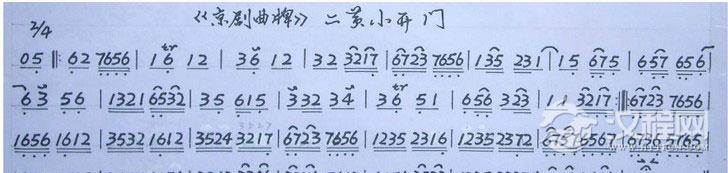 《京剧曲牌》二黄小开门
2/4
05 ‖: 62 7656 | 16 12 | 36 12 | 32 3217 | 6723 7656 | 135 231 | 15 675 | 657 656 |
63 56 | 1321 6532 | 35 615 | 332 34 | 36 51 | 656 323 | 11 3217 :‖ 6723 7656
1656 1612 | 3532 1612 | 3524 3217 | 6723 7656 | 1235 2316 | 1235 2372 |
汉程网